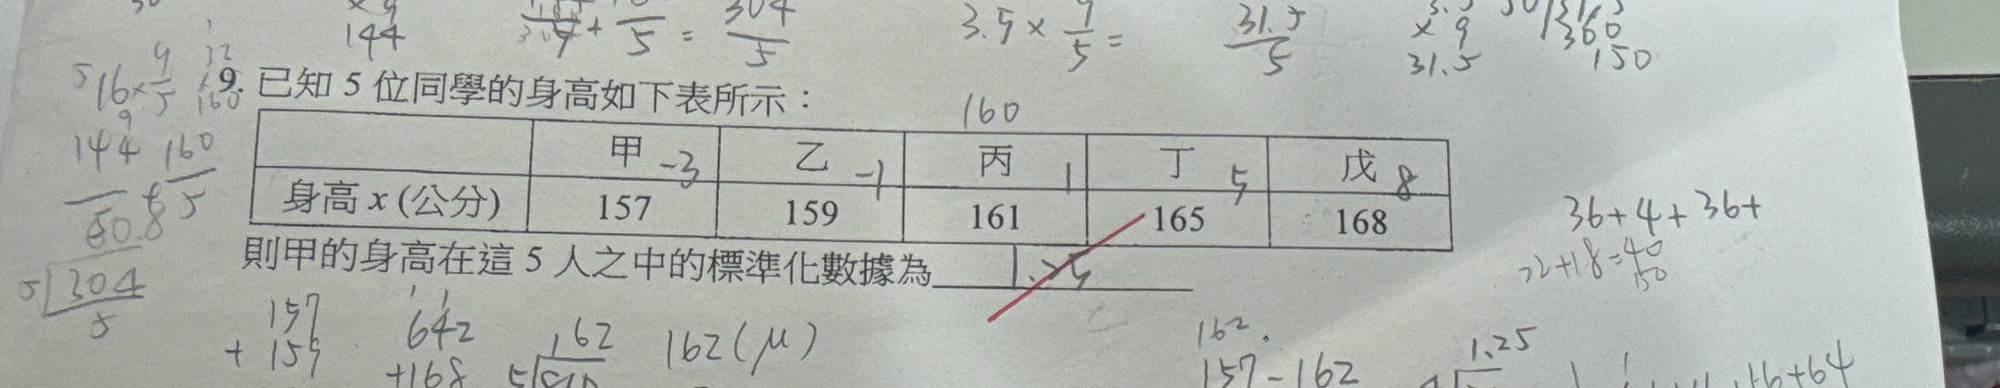 144
5
=
304
5
3.5 ×
9
5
=
31.5
5
× 9
31.5
360
150
16 ×
9
5
144
160
5
5 304
5
9. 已知 5 位同學的身高如下表所示：
160
甲 -3 乙 -1 丙 1 丁 5 戊 8
身高 x (公分) 157 159 161 165 168
則甲的身高在這 5 人之中的標準化數據為 1.25
36+4+36+
22+18=40
50
157
+ 159
642
+168
162
5
162(μ)
162
157-162
1.25
16+64